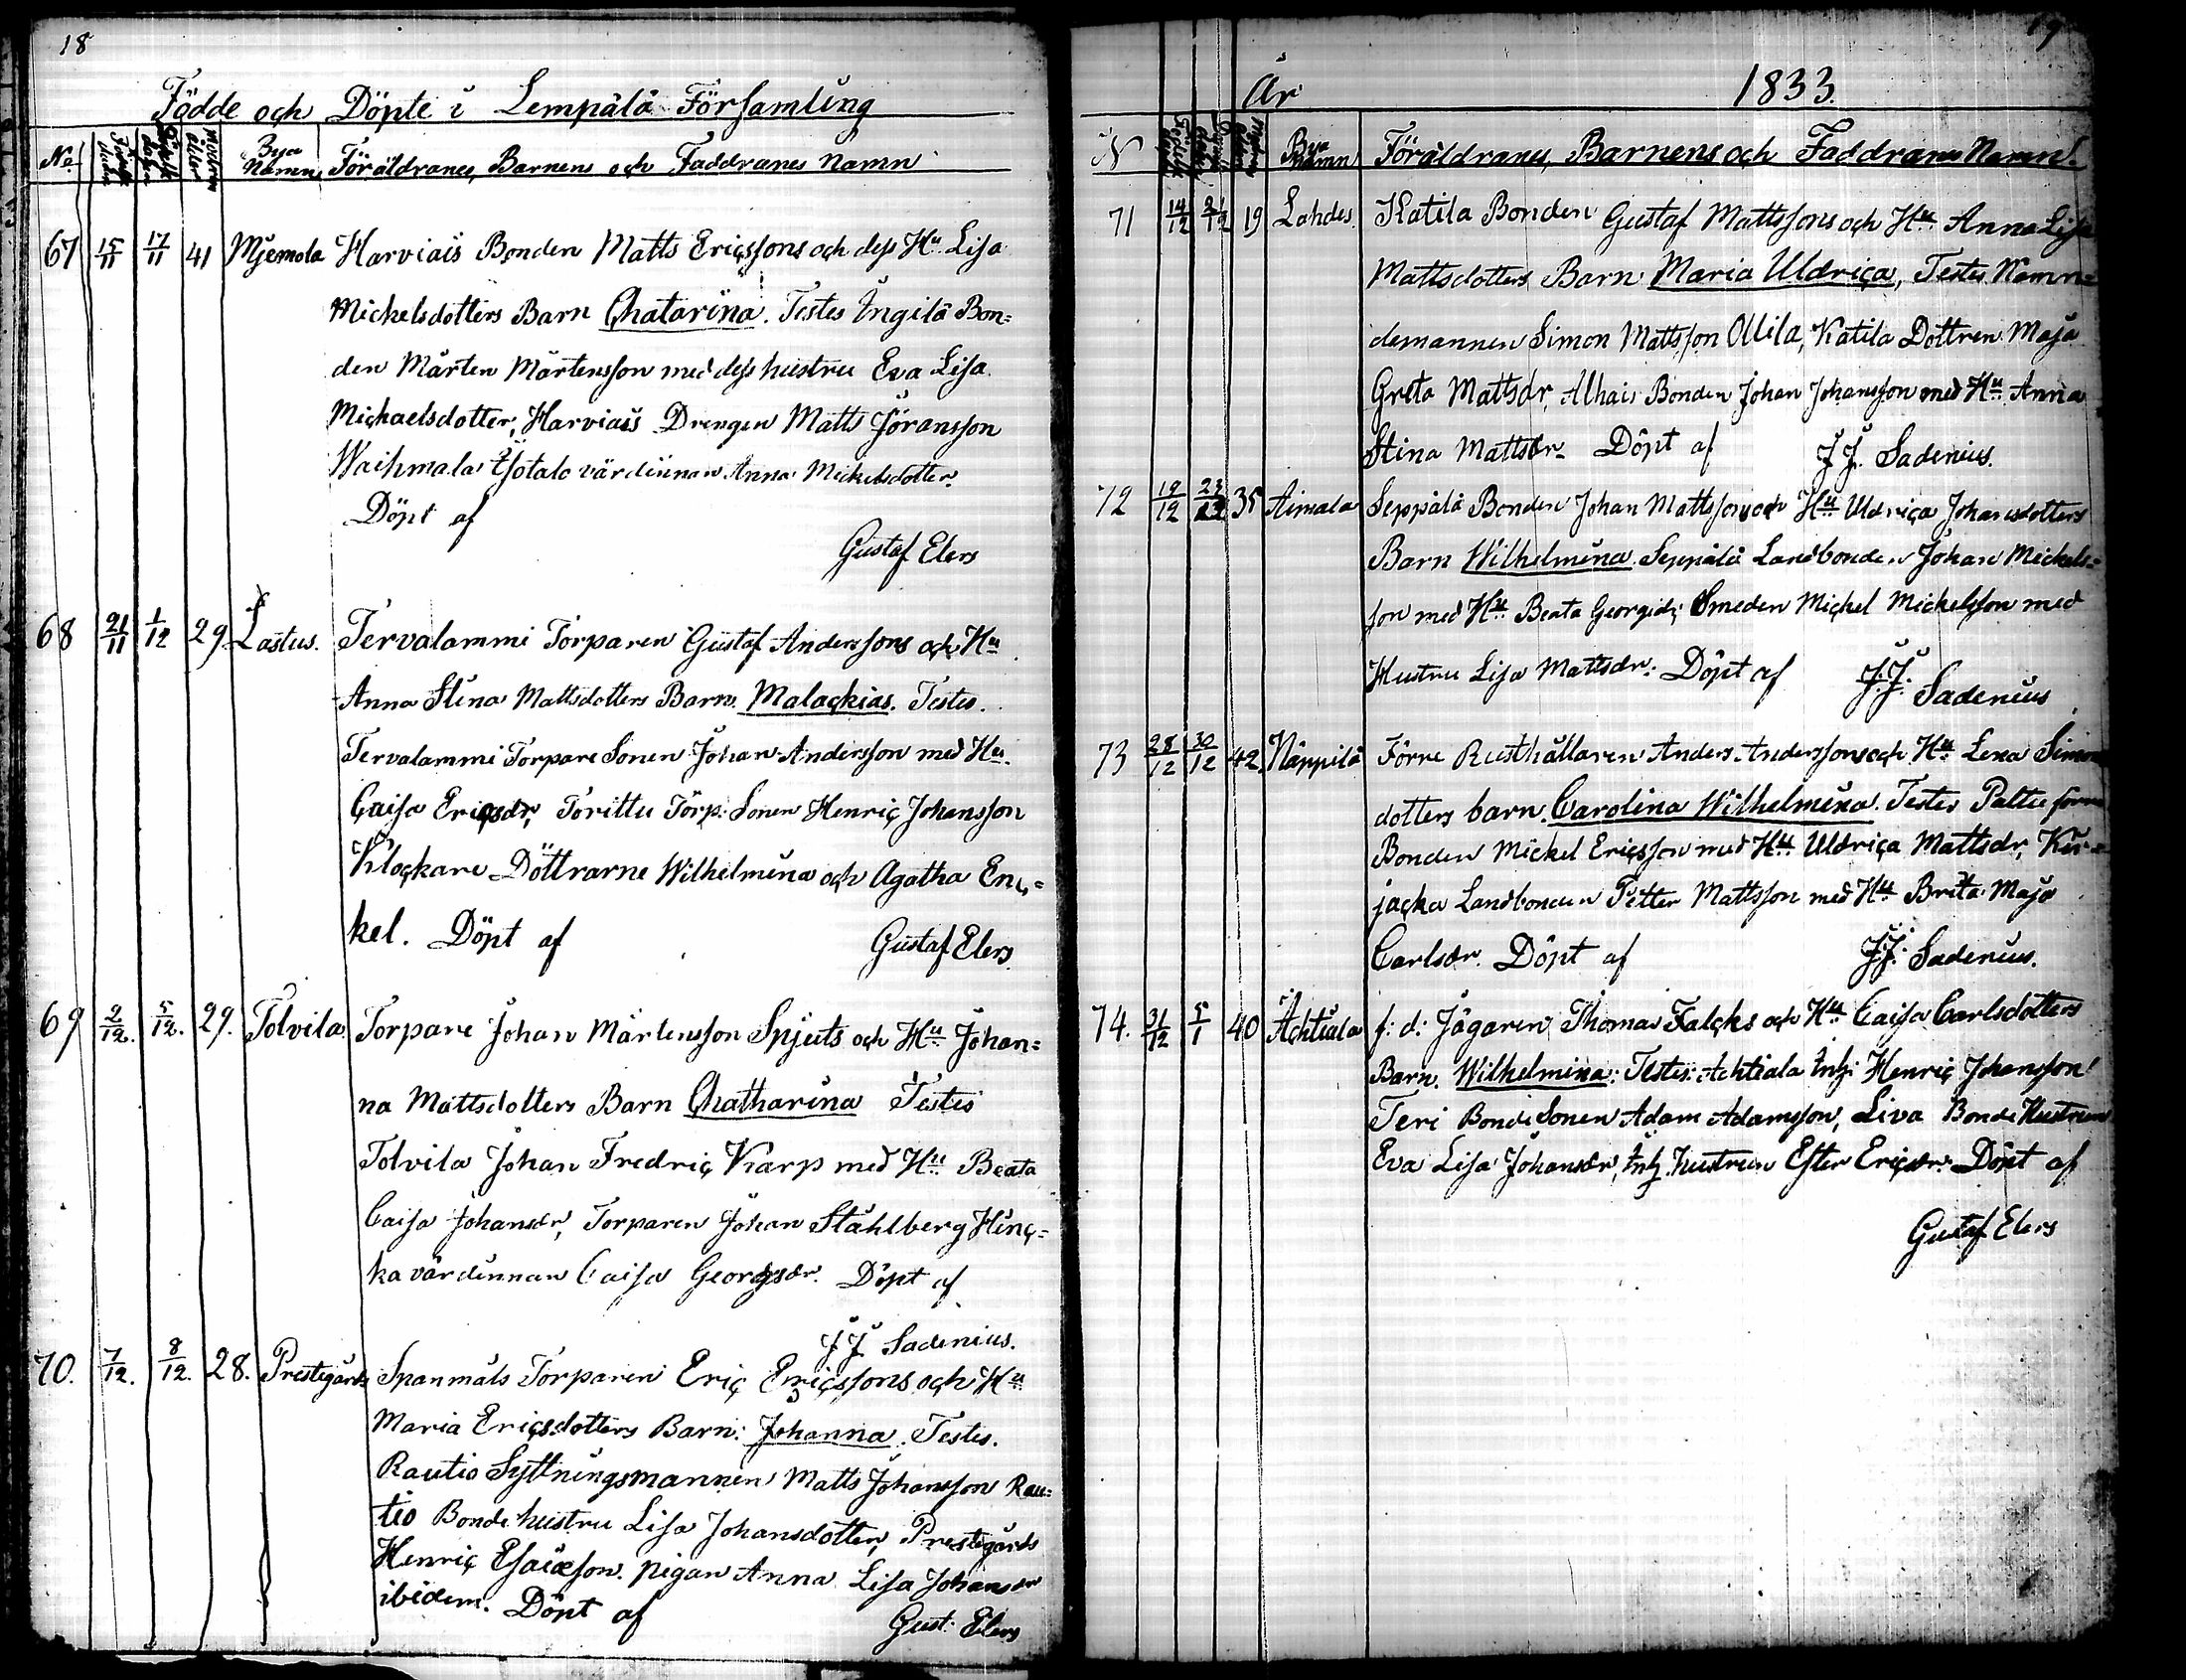 18
Födde och Döpte i Lempälä Församling
No. Födelse datum Döpelse datum Modrens ålder Bya Namn Föräldranes, Barnens och Faddranes Namn
67 15/11 17/11 41 Mjemola Harviais Bonden Matts Ericssons och dess Hu Lisa
Mickelsdotters Barn Chatarina. Testes Ingilä Bon=
den Mårten Mårtensson med dess hustru Eva Lisa
Michaelsdotter, Harviais Drengen Matts Jöransson
Waihmala värdinnan Anna Mickelsdotter.
Döpt af
Gustaf Elers
68 21/11 1/12 29. Lastus. Tervalammi Torparen Gustaf Anderssons och Hu
Anna Stina Mattsdotters Barn. Malackias. Testes.
Tervalammi Torpare Sonen Johan Andersson med Hu.
Caisa Ericsdr, Torittu Torp: Sonen Henric Johansson
Klockare Döttrarne Wilhelmina och Agatha Enc=
kel. Döpt af Gustaf Elers
69 2/12. 5/12. 29. Tolvila Torpare Johan Mårtensson Spjuts och Hu Johan=
na Mattsdotters Barn Chatharina Testes
Tolvila Johan Fredric Karp med Hu Beata
Caisa Johansdr, Torparen Johan Ståhlberg Hinc=
ka värdinnan Caisa Georgsdr. Döpt af
J J Sadenius.
70. 7/12. 8/12. 28. Prestegårds Spanmåls Torparen Eric Ericssons och Hu
Maria Ericsdotters Barn: Johanna. Testes.
Rautio Syttningsmannen Matts Johansson Rau=
tio Bonde hustru Lisa Johansdotter, Prestegårds
Henric Esaiæson. pigan Anna Lisa Johansdr
ibidem. Döpt af Gust: Elers
19
År 1833.
N Bya Namn Föräldranes, Barnens och Faddranes Namn.
71 14/12 21/12 19 Lahdes. Katila Bonden Gustaf Mattssons och Hu Anna Lisa
Mattsdotters Barn Maria Uldrica, Testes Nämn=
demannen Simon Mattsson Ollila, Katila Dottren Maja
Greta Mattsdr, Alhais Bonden Johan Johansson med Hu Anna
Stina Mattsdr. Döpt af J J. Sadenius.
72 19/12 23/12 35 Aimala Seppälä Bonden Johan Mattssons och Hu Uldrica Johansdotters
Barn Wilhelmina Seppälä Landbonden Johan Mickels=
son med Hu Beata Georgidr; Smeden Mickel Mickelsson med
Hustru Lisa Mattsdr. Döpt af J.J. Sadenius
73 28/12 30/12 42. Näppilä Förre Rusthållaren Anders Anderssons och Hu Lena Simons
dotters barn. Carolina Wilhelmina. Testes Pattu förre
Bonden Mickel Ericsson med Hu Uldrica Mattsdr, Kir=
jacka Landbonden Petter Mattsson med Hu Brita Maja
Carlsdr. Döpt af J.J. Sadenius.
74. 31/12 5/1 40 Achtiala f: d: Jägaren Thomas Falcks och Hu Caisa Carlsdotters
Barn. Wilhelmina: Testes: Achtiala Inh: Henric Johansson
Teri Bonde Sonen Adam Adamsson, Liva Bonde Hustrun
Eva Lisa Johansdr, Inh hustrun Ester Ericsdr. Döpt af
Gustaf Elers